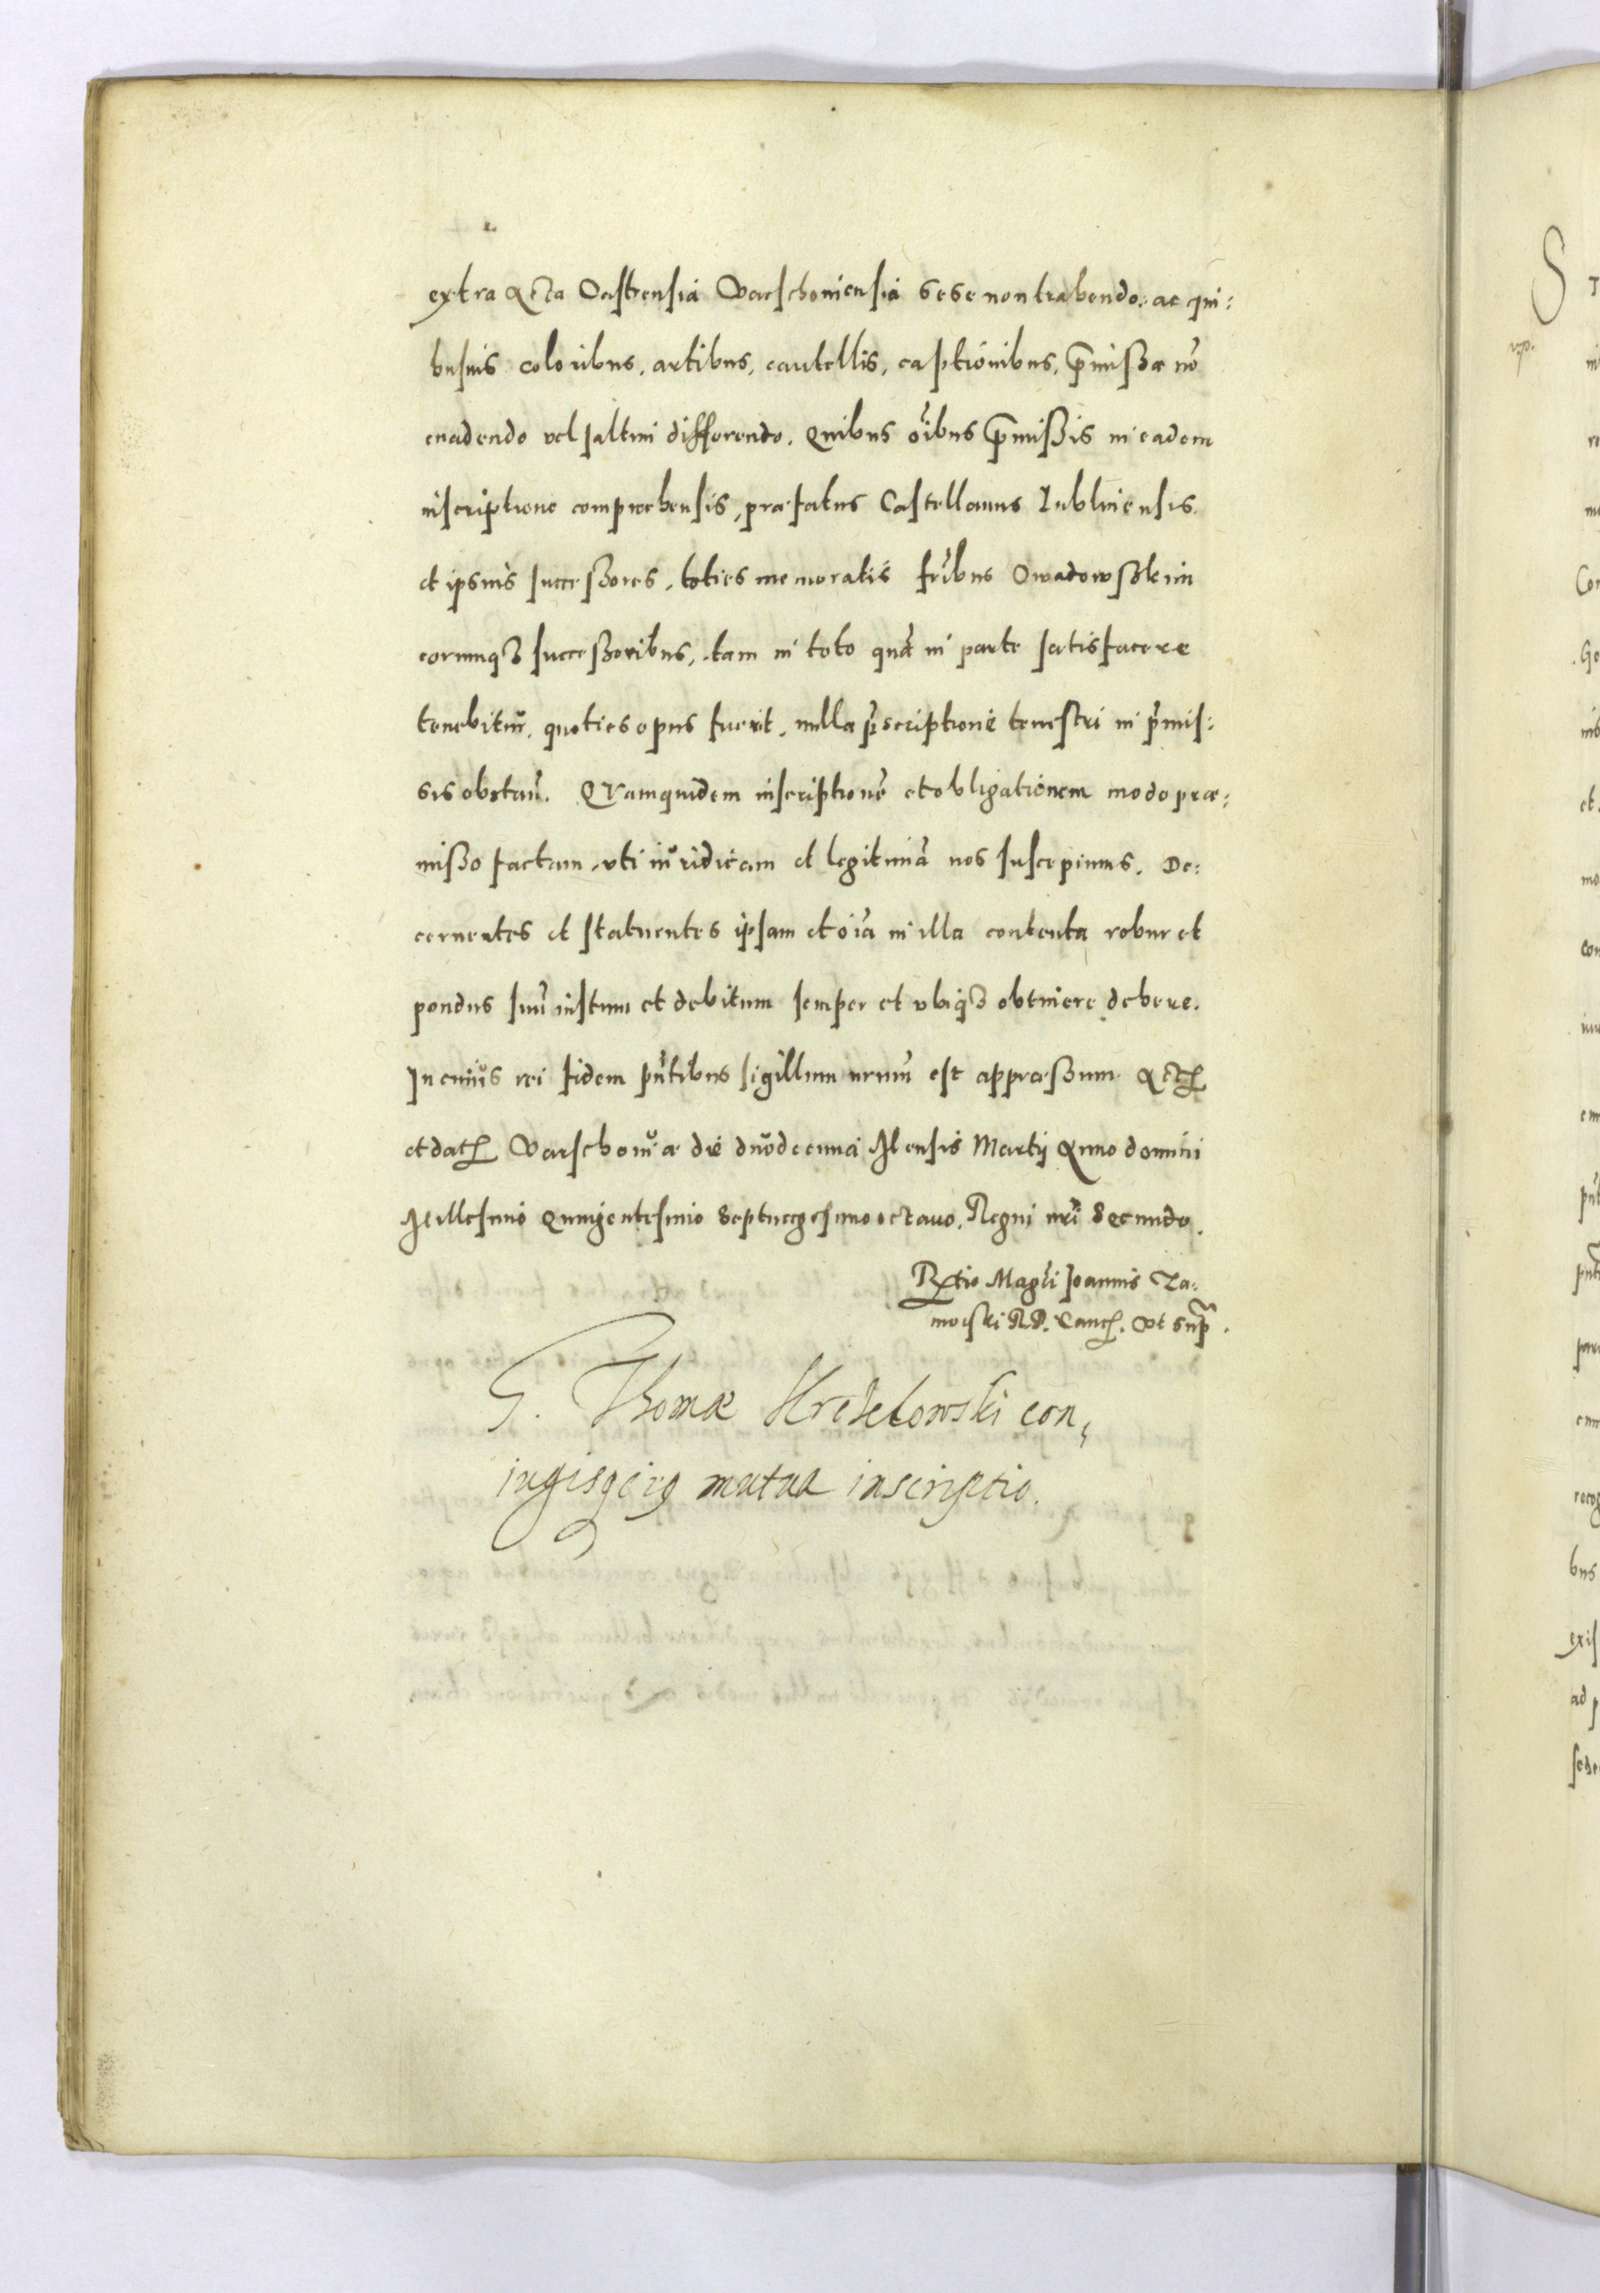 extra Acta Castrensia Varschoniensia sese non trahendo. ac qui:
busuis coloribus, artibus, cautellis, captionibus, p̃missa nō
euadendo vel saltim differendo. Quibus oĩbus p̃missis in eadem
inscriptione comprehensis, præfatus Castellanus Lubliniensis
et ipsius successores, toties memoratis fr̃ibus Owadowsskim
eorumqȝ successoribus, tam in toto quā in parte satisfacere
tenebitur̃, quoties opus fuerit, nulla p̃scriptione terrestri in p̃mis:
sis obstan̄. Quamquidem inscriptionē et obligationem modo præ:
misso factam, vti iuridicam et legitimā nos suscepimus. De:
cernentes et statuentes ipsam et oĩa in illa contenta robur et
pondus suū iustum et debitum semper et vbiqȝ obtinere debere.
In cuius rei fidem pñtibus sigillum nrum̃ est appressum. Act̃
et dat̃ Varschoviæ die duodecima Mensis Martij Anno domini
Millesimo Quingentesimo Septuagesimo octauo, Regni nrĩ Secundo.
Rł̃tio Mag̃ci Joannis Za:
moiski R.P. Canc̃. Vt sup̃.
G. Thomæ
iugisq̃ eiꝰ mutua inscriptio.